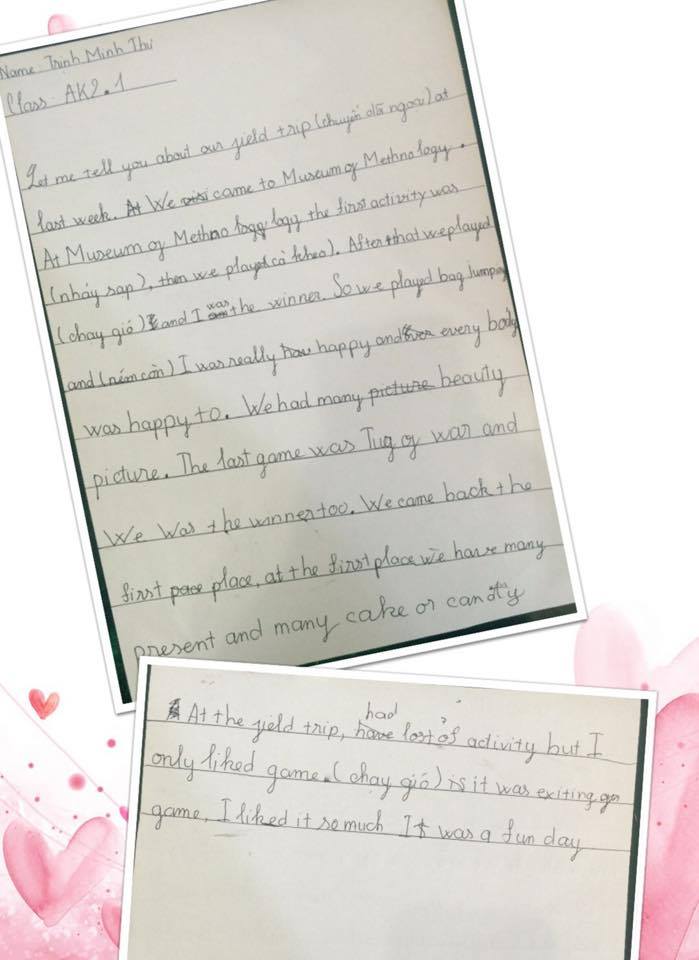 Name: Trinh Minh Thư
Class: AK2.1
Let me tell you about our field trip (chuyến dã ngoại) at
last week. At We visi came to Museum of Methnology.
At Museum of Methno logg logy the first activity was
(nhảy sạp), then we played (cà kheo). After that we played
(chạy gió) and I was the winner. So we played bag jumping
and (ném còn) I was really hau happy and ever every body
was happy to. We had many picture beauty
picture. The last game was Tug of war and
We was the winner too. We came back the
first pace place, at the first place we have many
present and many cake or candy
At the field trip, had
have lost of activity but I
only liked game. (chạy gió) is it was exiting gam
game. I liked it so much It was a fun day